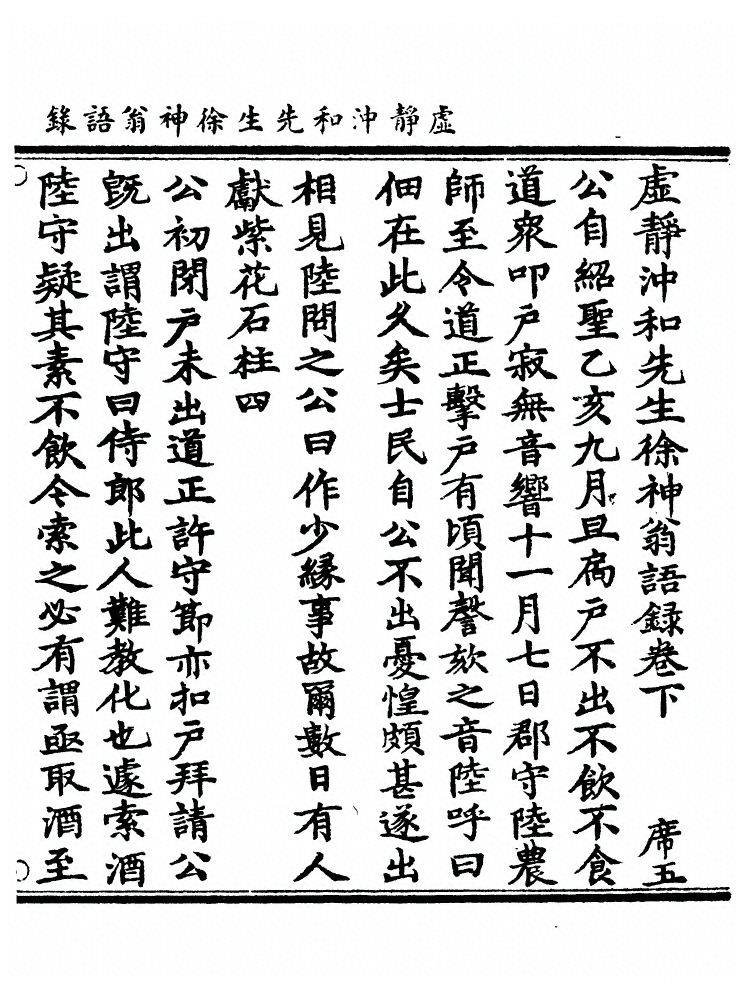 虛靜沖和先生徐神翁語錄
虛靜沖和先生徐神翁語録卷下 席五
公自紹聖乙亥九月旦扃户不出不飲不食
道衆叩户寂無音響十一月七日郡守陸農
師至令道正擊户有頃聞謦欬之音陸呼曰
佃在此久矣士民自公不出憂惶頗甚遂出
相見陸問之公曰作少縁事故爾數日有人
獻紫花石柱四
公初閉户未出道正許守節亦扣户拜請公
旣出謂陸守曰侍郎此人難教化也遽索酒
陸守疑其素不飲令索之必有謂亟取酒至